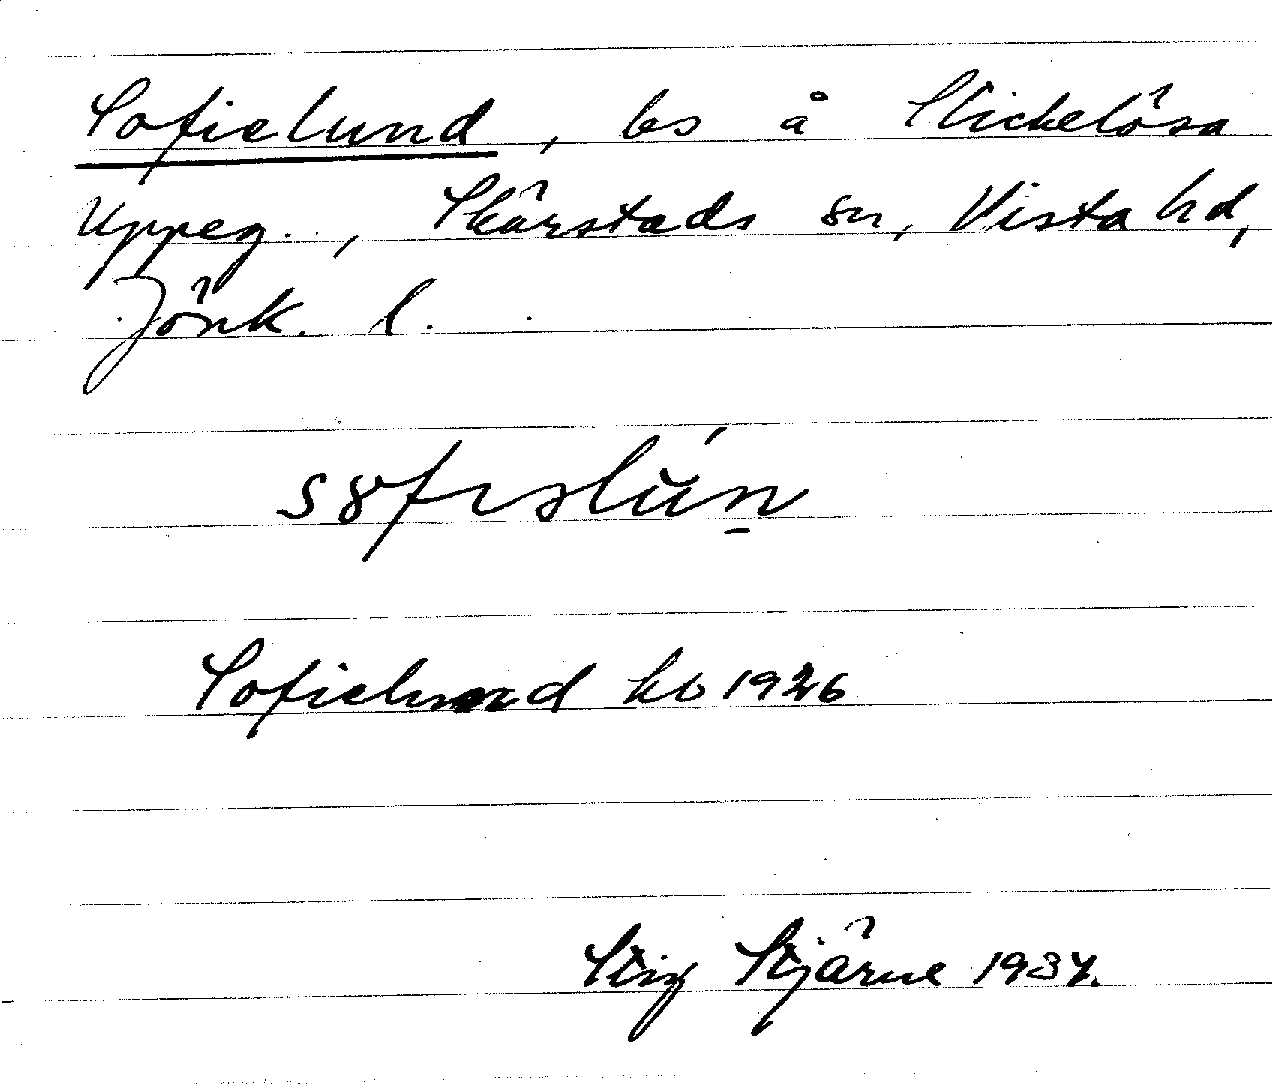 Sofielund, ls å Stickelösa
Uppeg., Skärstads sn, Vista hd,
Jönk. l.
Sofielund hb 1926
Stig Stjärne 1937.